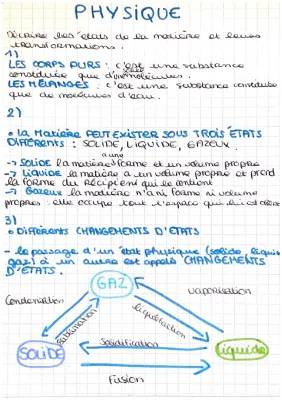 PHYSIQUE
Décrire les états de la matière et leurs
transformations.
1)
LES CORPS PURS : c'est une substance
constituée que d'une molécules.
LES MÉLANGES : c'est une substance constituée
que de molécules d'eau.
2)
• La Matière PEUT EXISTER SOUS TROIS ÉTATS
DIFFÉRENTS : SOLIDE, LIQUIDE, GAZEUX.
→ SOLIDE la matière a une forme et un volume propre
→ Liquide la matière a un volume propre et prend
la forme du Récipient qui le contient
→ Gazeux la matière n'a ni forme ni volume
propres : elle occupe tout l'espace qui lui est offert
3)
• DIFFÉRENTS CHANGEMENTS D'ÉTATS
→ le passage d'un état physique (solide, liquide
gaz) à un autre est appelé CHANGEMENTS
D'ÉTATS.
GAZ
Condensation
Sublimation
Liquéfaction
Vaporisation
SOLIDE
Solidification
Liquide
Fusion